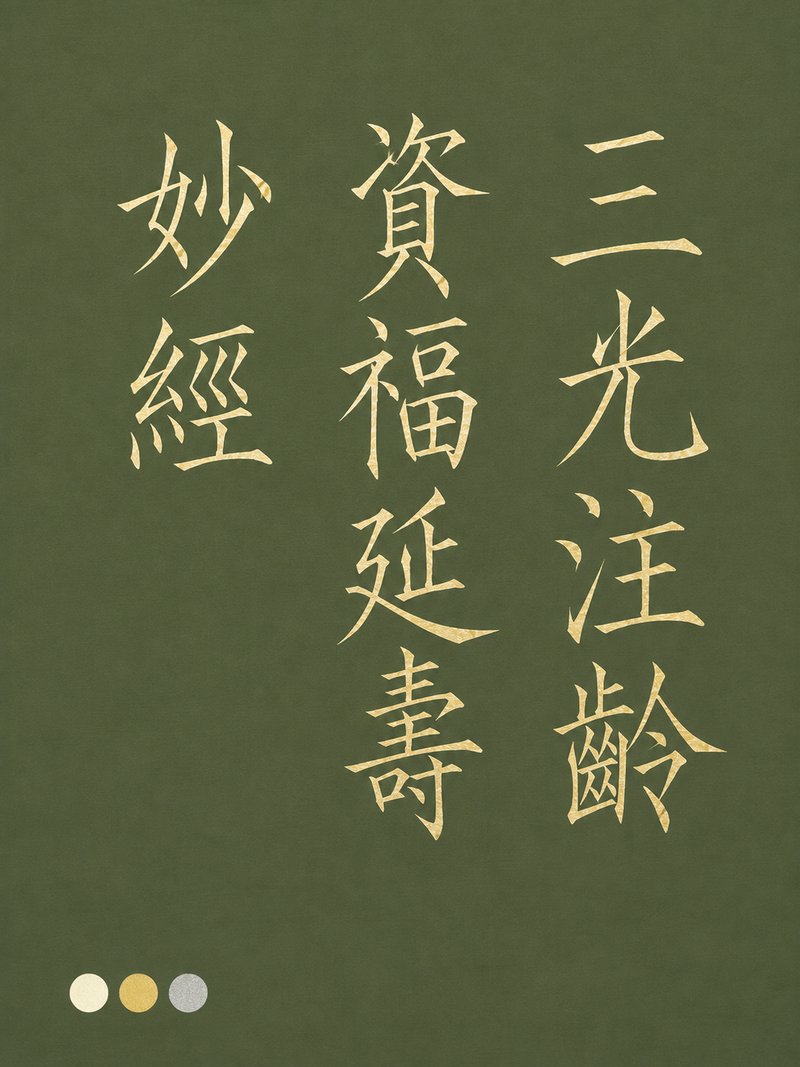 三光注齡
資福延壽
妙經